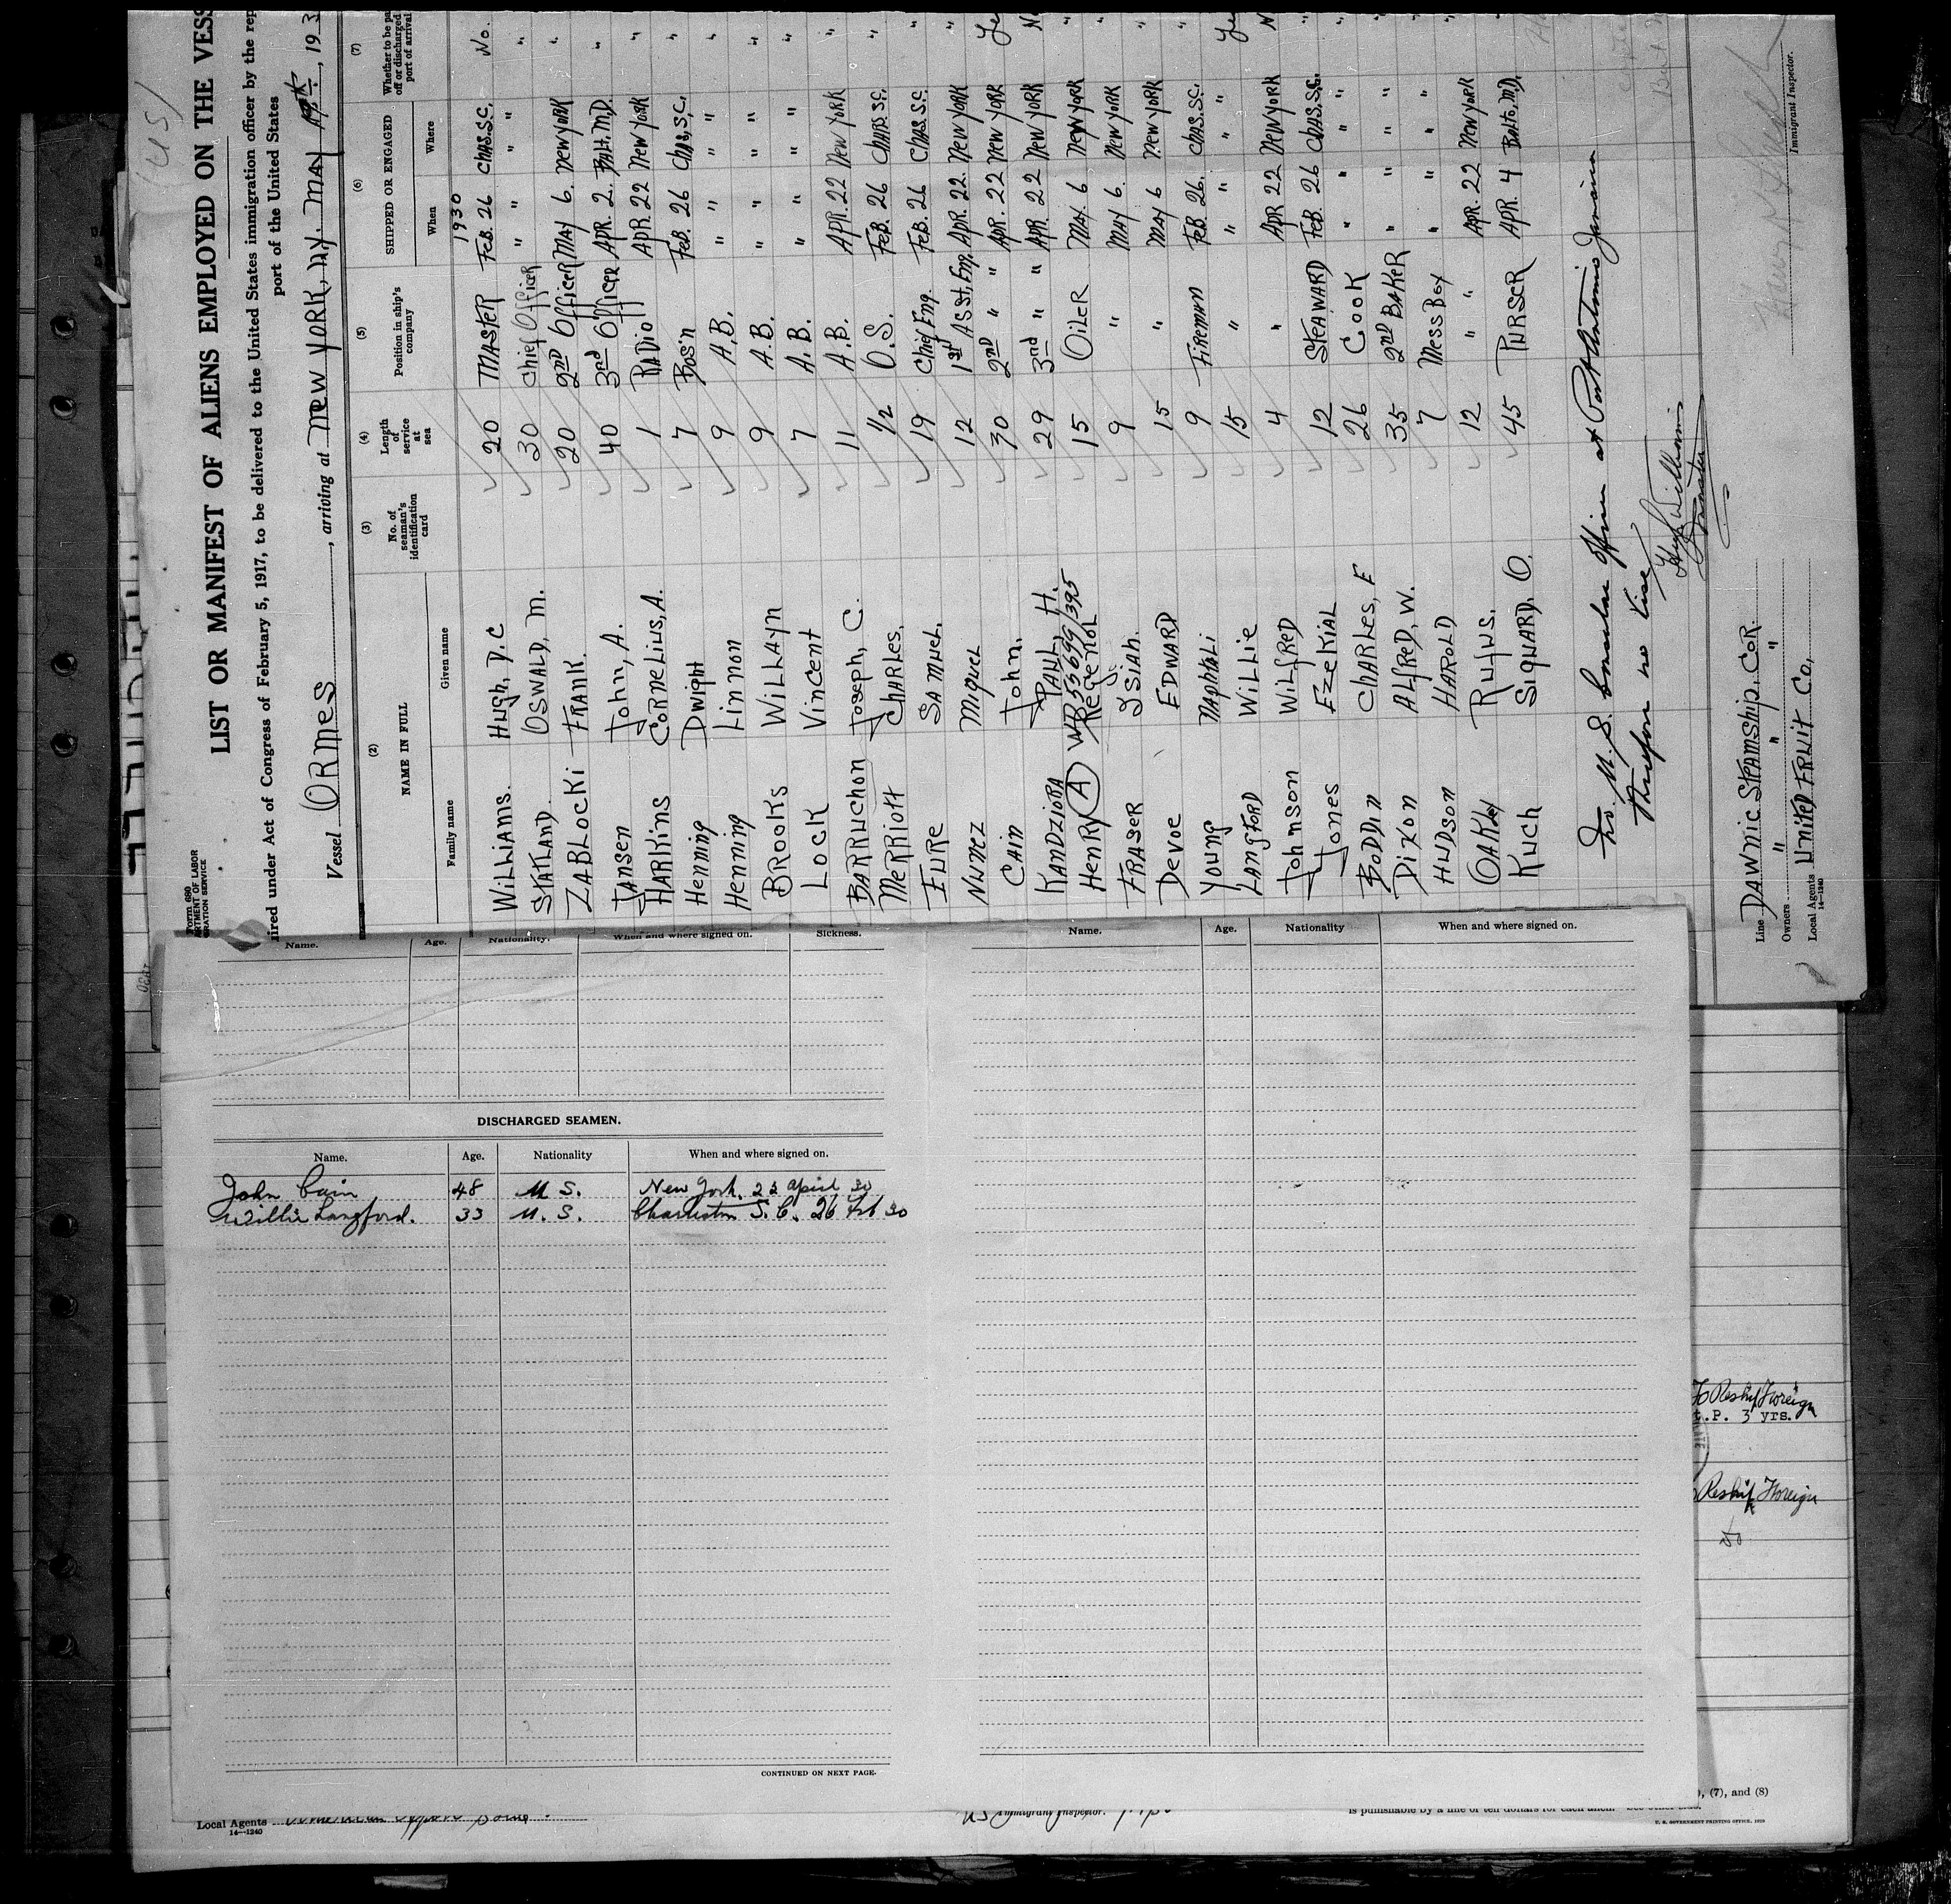 LIST OR MANIFEST OF ALIENS EMPLOYED ON THE VESS
ired under Act of Congress of February 5, 1917, to be delivered to the United States immigration officer by the rep
port of the United States
Form 680
RTMENT OF LABOR
GRATION SERVICE
Vessel ORMES, arriving at NEW YORK, N.Y. MAY, 193
(2) (3) (4) (5) (6) (7)
NAME IN FULL No. of seaman's identification card Length of service at sea Position in ship's company SHIPPED OR ENGAGED Whether to be pa off or discharged port of arrival
Family name Given name When Where
1930
Williams. Hugh, D.C 20 MASTER FEB. 26 CHAS.S.C. No.
STATLAND. OSWALD, M. 30 Chief Officer " " " "
ZABLOCKI FRANK. 20 2ND Officer MAY 6. NEW YORK "
JANSEN John, A. 40 3rd Officer APR. 2. BALT. M.D. "
HARKINS CORNELIUS, A. 1 RADIO APR 22 NEW YORK "
Henning Dwight 7 BOS'N FEB. 26 CHAS, S.C. "
Henning Linnon 9 A.B. " " "
BROOKS WILLAYN 9 A.B. " " "
LOCK Vincent 7 A.B. " " "
BARRUCHON Joseph, C. 11 A.B. APR. 22 NEW YORK "
MERRIOTT CHARLES. 1/2 O.S. FEB. 26 CHAS S.C. "
EURE SAMUEL. 19 Chief Eng. FEB. 26 CHAS. S.C. "
NUNEZ MIQUEL 12 1st ASST. Eng. APR. 22. NEW YORK "
CAIN John. 30 2ND " " APR. 22 NEW YORK Ye
KANDZIORA PAUL, H. 29 3rd " " APR 22 NEW YORK N
WB 55699/395
HENRY (A) Regenol 15 OILER MAY. 6 NEW YORK "
FRASER ISIAH. 9 " MAY 6. NEW YORK "
DEVOE EDWARD 15 " MAY 6 NEW YORK "
YOUNG NAPHTALI 9 FIREMAN FEB. 26. CHAS.S.C. "
LANGFORD WILLIE 15 " " " Ye
Johnson WILFRED 4 " APR 22 NEW YORK N
Jones EZEKIAL 12 STEAWARD FEB. 26 CHAS.S.C. "
BODDIN CHARLES, F 26 COOK " " "
DIXON ALFRED, W. 35 2ND BAKER " " "
HUDSON HAROLD 7 MESS BOY " " "
OAKLEY RUFUS. 12 " " APR. 22 NEW YORK "
KUCH SIGUARD, O. 45 PURSER APR. 4 BALTO, M.D. "
No U. S. Consular Officer at Port Antonio Jamaica
Therefore no Vise
Hugh Williams
Master
Line DAWNIC STEAMSHIP, COR.
Owners " " "
Local Agents UNITED FRUIT Co,
14—1240
Immigrant Inspector.
Name. Age. Nationality. When and where signed on. Sickness.
DISCHARGED SEAMEN.
Name. Age. Nationality When and where signed on.
John Cain 48 U. S. New York. 22 April 30
Willie Langford. 33 U. S. Charleston S. C. 26 Feb 30
CONTINUED ON NEXT PAGE.
Name. Age. Nationality When and where signed on.
To Reship Foreign
t.P. 3 yrs.
Reship Foreign
do
), (7), and (8)
Local Agents
14—1240
US Immigrant Inspector.
is punishable by a fine of ten dollars for each alien. See other side.
U. S. GOVERNMENT PRINTING OFFICE, 1929